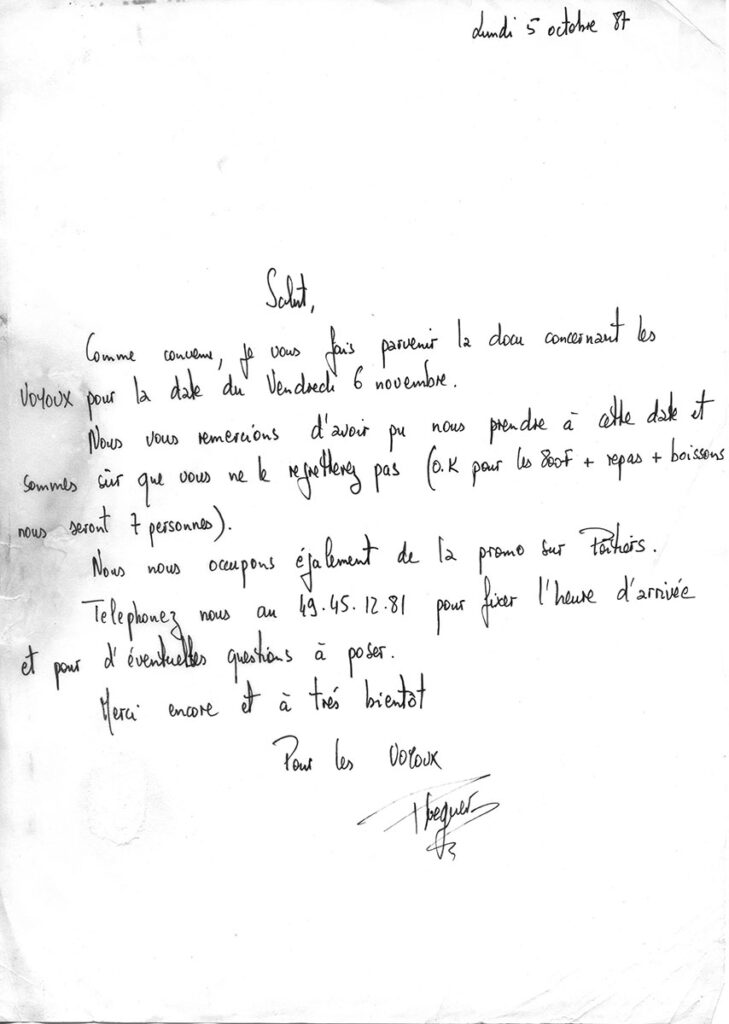 Lundi 5 octobre 87
Salut,
Comme convenu, je vous fais parvenir la docu concernant les
VOYOUX pour la date du Vendredi 6 novembre.
Nous vous remercions d'avoir pu nous prendre à cette date et
sommes sûr que vous ne le regretterez pas (O.K pour les 800F + repas + boissons
nous seront 7 personnes).
Nous nous occupons également de la promo sur Poitiers.
Telephonez nous au 49.45.12.81 pour fixer l'heure d'arrivée
et pour d'éventuelles questions à poser.
Merci encore et à trés bientôt
Pour les VOYOUX